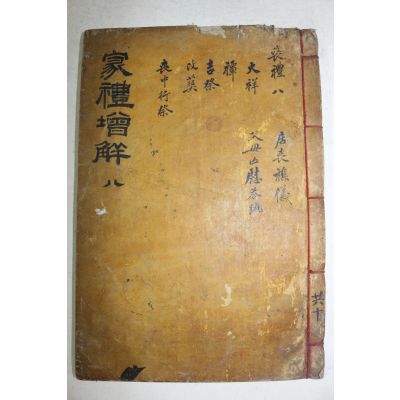 家禮增解 八
喪禮八
大祥
禫
吉祭
改葬
喪中行祭
居喪雜儀
父母亡慰答疏
共十